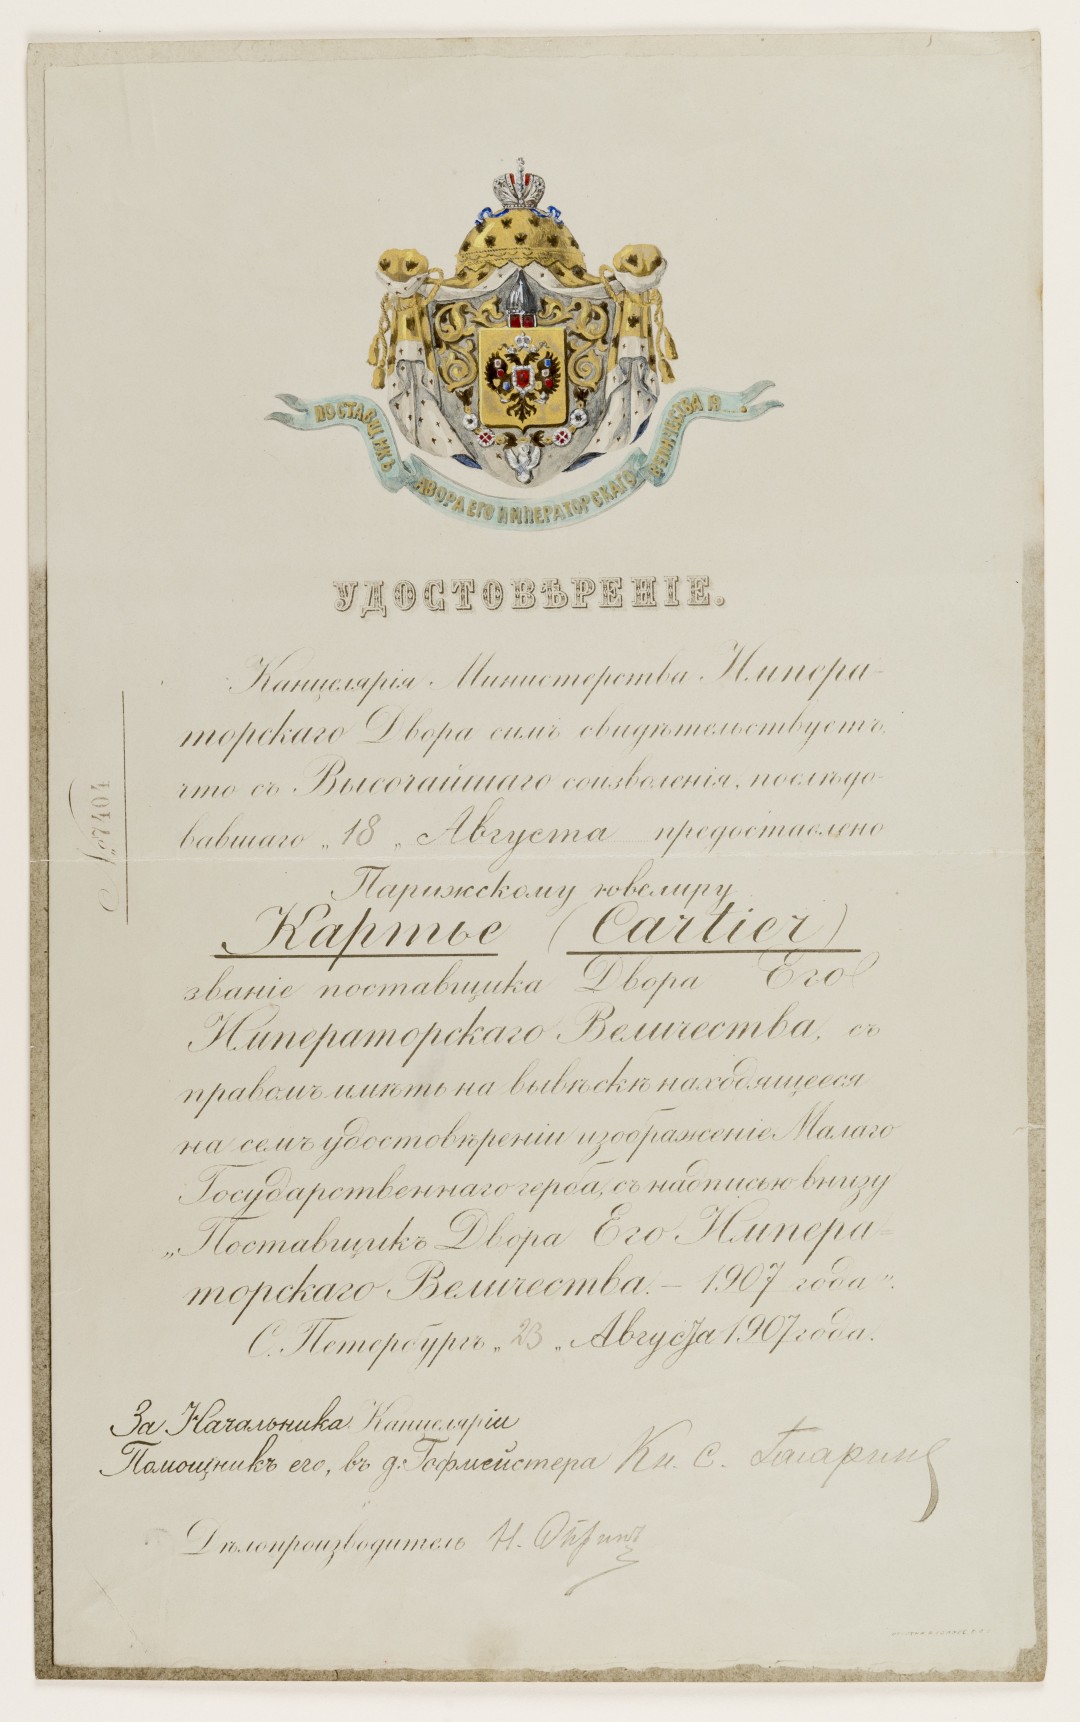 ПОСТАВЩИКЪ ДВОРА ЕГО ИМПЕРАТОРСКАГО ВЕЛИЧЕСТВА
УДОСТОВѢРЕНІЕ.
Канцелярія Министерства Импера-
торскаго Двора симъ свидѣтельствуетъ,
что съ Высочайшаго соизволенія, послѣдо-
вавшаго „18„ Августа предоставлено
Парижскому ювелиру
Картье (Cartier)
званіе поставщика Двора Его
Императорскаго Величества, съ
правомъ имѣть на вывѣскѣ находящееся
на семъ удостовѣреніи изображеніе Малаго
Государственнаго герба, съ надписью внизу
„Поставщикъ Двора Его Импера-
торскаго Величества. – 1907 года".
С. Петербургъ „23„ Августа 1907 года.
За Начальника Канцеляріи
Помощникъ его, въ д: Гофмейстера Кн. С. Гагаринъ
Дѣлопроизводитель Н.
№ 7404